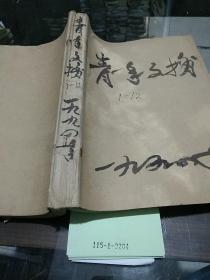 青年文摘
1-12
一九九四年
青年文摘
1-12
一九九四
115-1-2204